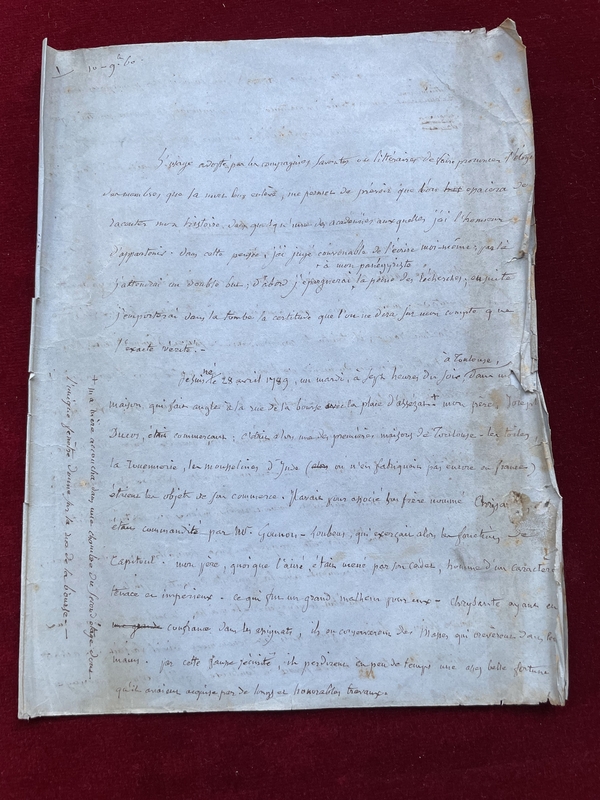 1
10 - 9bre 60
L'usage adopté par les compagnies savantes ou littéraires de faire prononcer l'éloge
des membres que la mort leur enlève, me permet de prévoir que l'on
racontera mon histoire, dans quelqu'une des académies auxquelles j'ai l'honneur
d'appartenir. dans cette pensée, j'ai jugé convenable de l'écrire moi-même; par là
+ à mon panégyriste
j'attendrai un double but; d'abord j'épargnerai la peine des recherches, ensuite
j'emporterai dans la tombe la certitude que l'on ne dira sur mon compte que
l'exacte vérité. -
à Toulouse,
Je suis né le 28 avril 1789, un mardi, à sept heures du soir dans une
maison, qui fait angle à la rue de la bourse avec la place d'assezat + mon père, Joseph
Ducos, était commerçant; c'était alors une des premières maisons de Toulouse. les toiles,
la rouennerie, les mousselines d'Inde (ou n'en fabriquait pas encore en france)
étaient les objets de son commerce. Il avait pour associé son frère nommé
était commandité par Mr. Gounon-Loubens, qui exerçait alors les fonctions de
Capitoul. mon père, quoique l'aîné, était mené par son cadet, homme d'un caractère
tenace et impérieux. ce qui fut un grand malheur pour eux - chrysante ayant eu
confiance dans les assignats, ils en conservèrent des masses qui crevèrent dans leurs
mains. par cette fausse sécurité, ils perdirent en peu de temps une assez belle fortune
qu'ils avaient acquise par de longs et honorables travaux.
+ ma mère accoucha dans une chambre du second étage dont
l'unique fenêtre donne sur la rue de la bourse. -